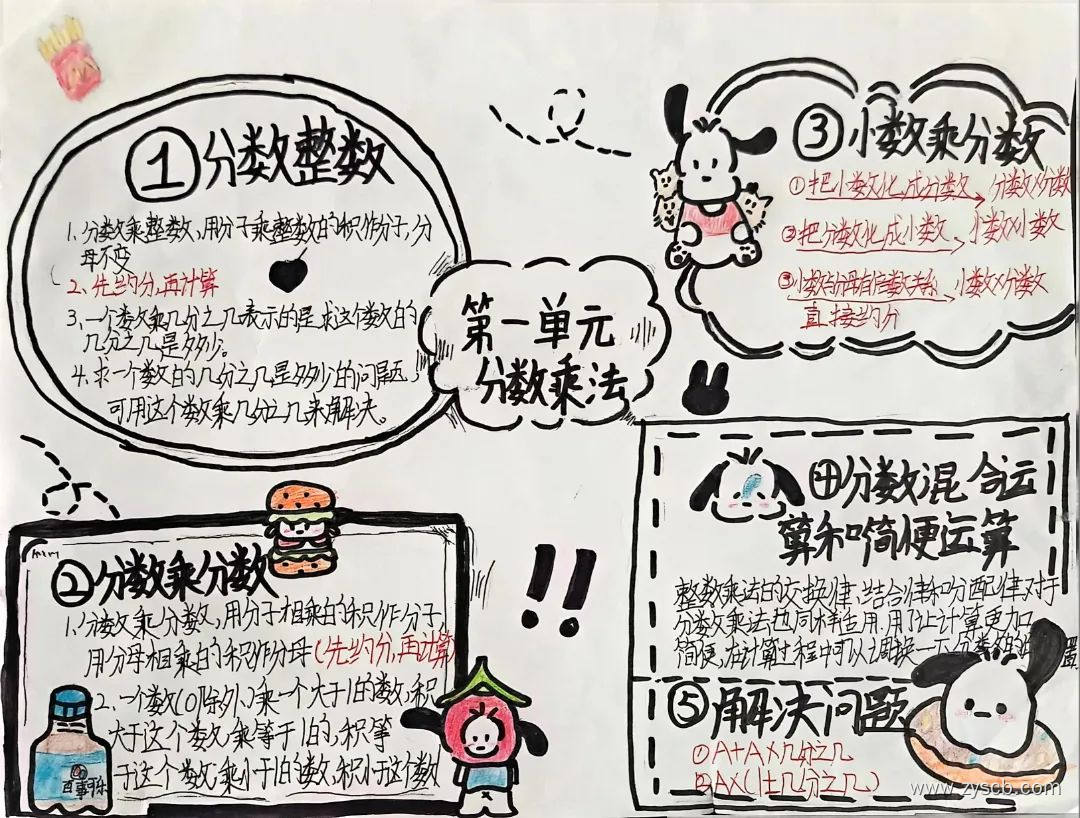 第一单元
分数乘法
①分数整数
1、分数乘整数,用分子乘整数的积作分子,分
母不变
2、先约分,再计算
3、一个数乘几分之几表示的是求这个数的
几分之几是多少。
4、求一个数的几分之几是多少的问题,
可用这个数乘几分之几来解决。
②分数乘分数
1、分数乘分数,用分子相乘的积作分子,
用分母相乘的积作分母(先约分,再计算
2、一个数(0除外)乘一个大于1的数,积
大于这个数;乘等于1的,积等
于这个数;乘小于1的数,积小于这个数
百事可乐
③小数乘分数
①把小数化成分数 分数×分数
②把分数化成小数 小数×小数
③小数与分母有倍数关系 小数×分数
直接约分
④分数混合运
算和简便运算
整数乘法的交换律,结合律和分配律对于
分数乘法也同样适用,用了让计算更加
简便,在计算过程中可以调换一下分数的位置
⑤解决问题
①A+A×几分之几
②A×(1±几分之几)
www.zyscb.com